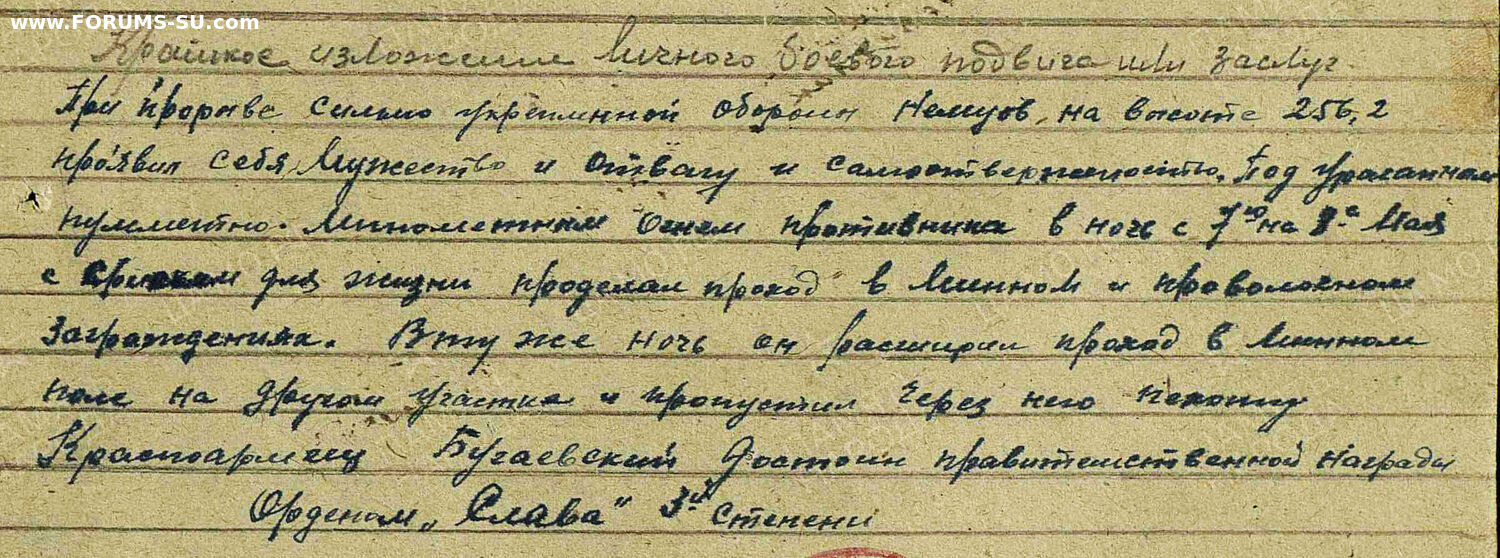 www.FORUMS-SU.com
Краткое изложение личного боевого подвига или заслуг.
При прорыве сильно укреплинной обороны немцов, на высоте 256,2
проявил себя, мужество и отвагу и самоотверженность. Под ураганном
пулиметно. минометным огнем противника в ночь с 7го на 8е мая
с риском для жизни проделал проход в минном и проволочном
заграждениях. В ту же ночь он расширил проход в минном
поле на другом участке и пропустил через него пехоту
Красноармеец Бугаевский достоин правительственной награды
Орденом „Слава" 3й степени